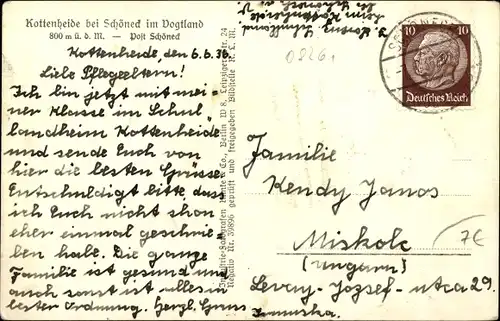 Kottenheide bei Schöneck im Vogtland
800 m ü. d. M. — Post Schöneck
Kottenheide, den 6.6.36.
Liebe Pflegeeltern!
Ich bin jetzt mit mei-
ner Klasse im Schul-
landheim Kottenheide
und sende Euch von
hier die besten Grüsse.
Entschuldigt bitte, dass
ich Euch nicht schon
eher einmal geschrie-
ben habe. Die ganze
Familie ist gesund und
auch sonst ist alles in
bester Ordnung. Herzl. Gruss
Berlin W 8, Leipzigerstr. 24
Reg. Nr. 39896 geprüft und freigegeben Bildstelle R. L. M.
10 10
Deutsches Reich
Familie
Kendy Janos
Miskolc
(Ungarn)
Levay-Jozsef-utca 29.
7€